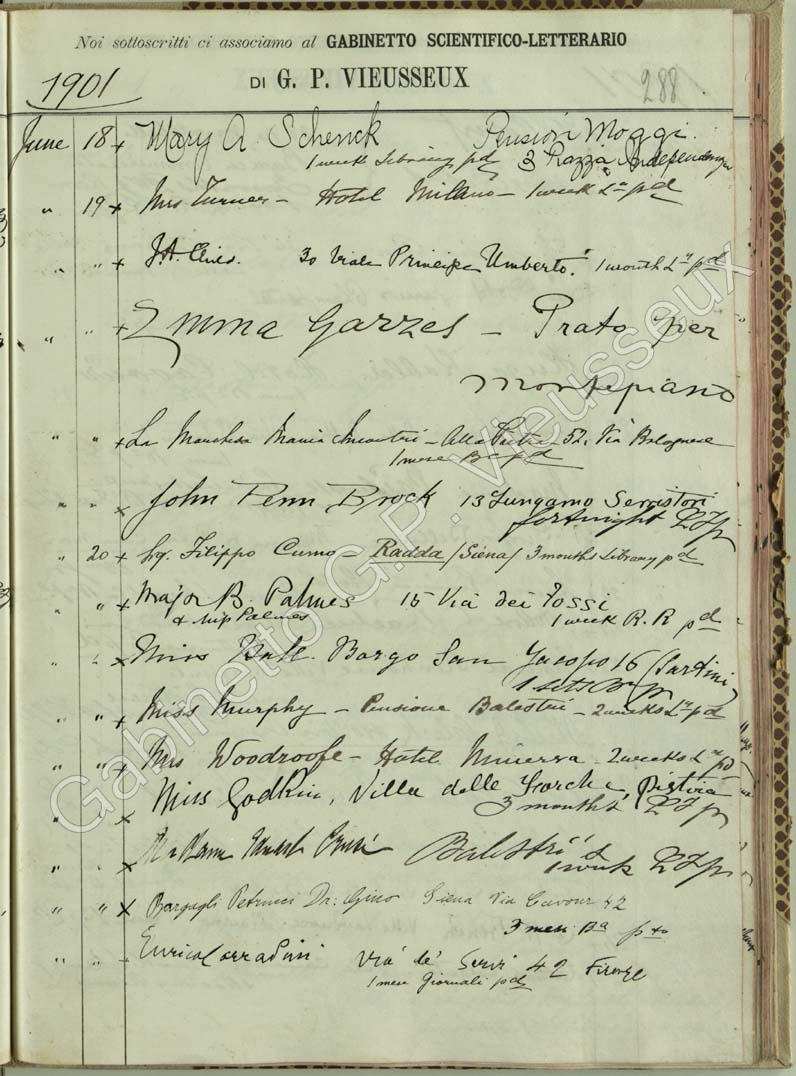 Noi sottoscritti ci associamo al GABINETTO SCIENTIFICO-LETTERARIO
DI G. P. VIEUSSEUX
1901
288
June 18 x Mary A. Schenck Pension Moggi.
1 week Library pd 3 Piazza Independenza
" 19 x Mrs Turner - Hotel Milano - 1 week Ly pd
" " x J.A. 30 Viale Principe Umberto. 1 month Ly pd
" " x Emma Garzes - Prato per
Montepiano
" " x La Marchesa Maria Incontri - Alla Pietra - 52. Via Bolognese
1 mese pd
" " x John Penn Brock 13 Lungarno Serristori
fortnight
" 20 x Filippo Radda (Siena) 3 months Library pd
" " x Major B. Palmes 15 Via dei Fossi
& Miss Palmes 1 week R.R pd
" " x Miss Borgo San Jacopo 16 (Sartini)
" " x Miss Murphy - Pensione Balestri - 2 weeks Ly pd
" " x Mrs Woodroofe - Hotel Minerva - 2 weeks Ly pd
" " x Miss Godkin, Villa delle Forche, Pistoia
3 months
" " x Madame Balestri
1 week
" " x Bargagli Petrucci Dr: Gino Siena Via Cavour 42
3 mesi
" " Enrico Corradini Via de' Servi 42 Firenze
1 mese Giornali pd
Gabinetto G.P. Vieusseux